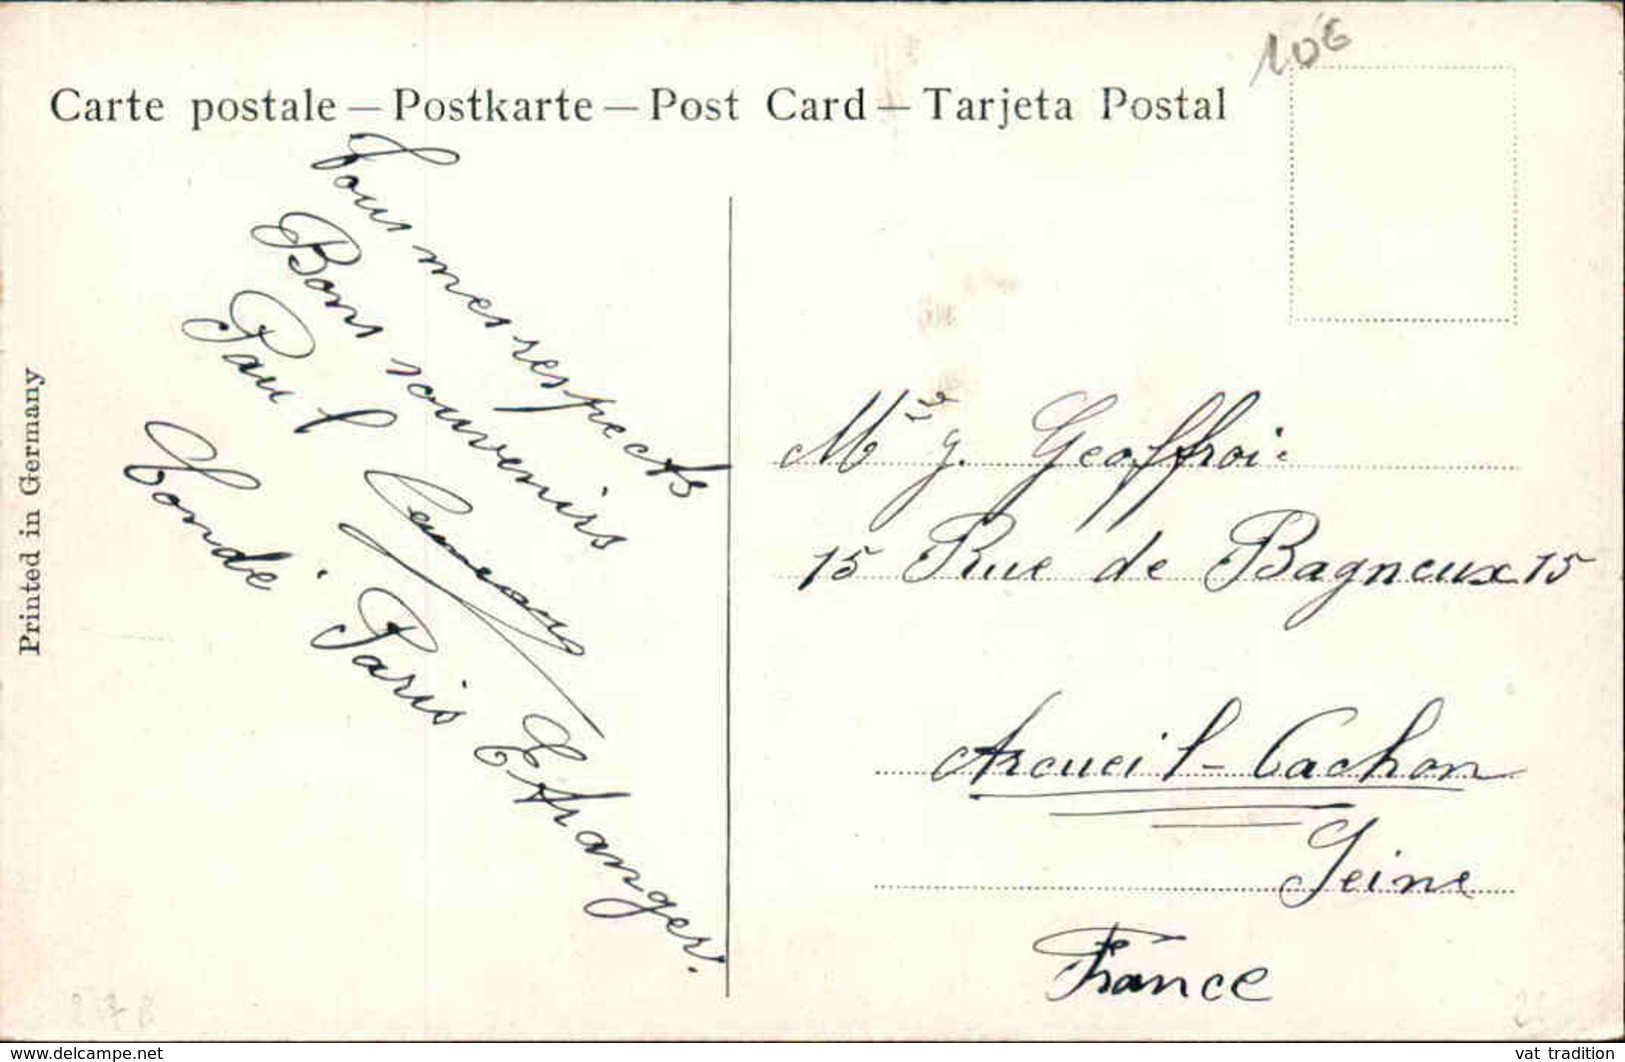 10€
Carte postale — Postkarte — Post Card — Tarjeta Postal
Tous mes respects
Bons souvenirs
Paul
Conde. Paris Etranger.
Mlle G. Geoffroi.
15 Rue de Bagneux 15
Arcueil-Cachan
Seine
France
Printed in Germany
www.delcampe.net
vat_tradition